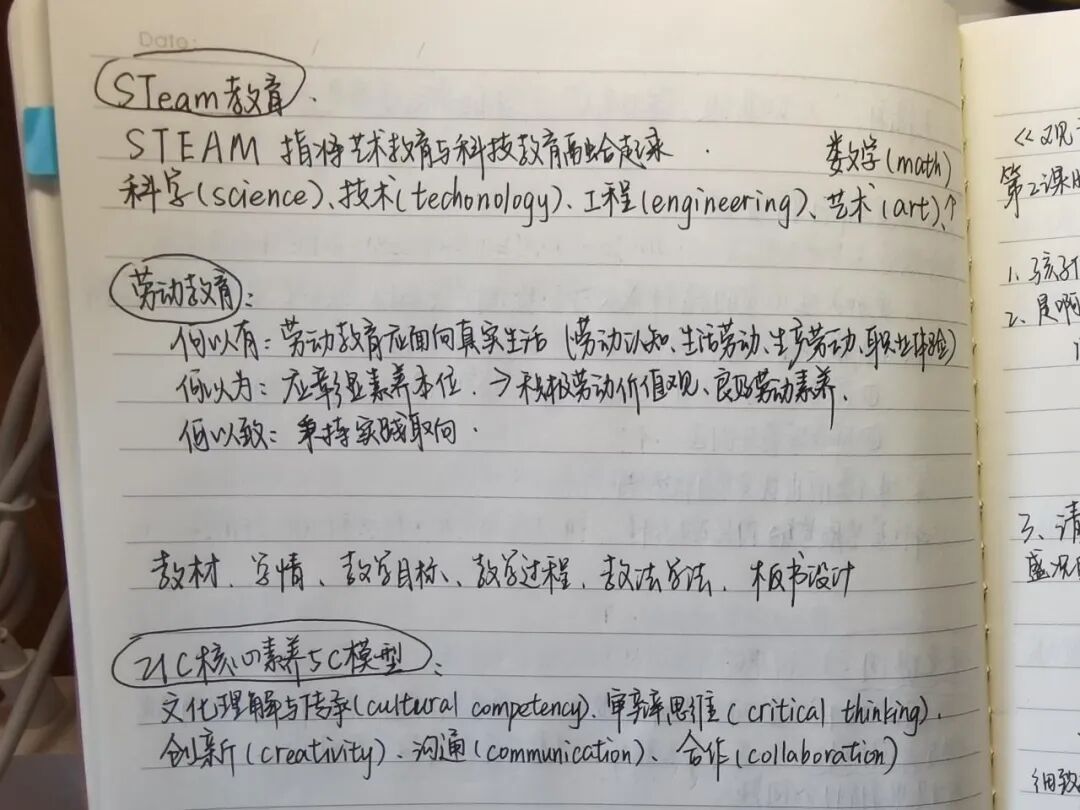 Date: / /
STeam教育.
STEAM 指将艺术教育与科技教育融合起来. 数学(math)
科学(science)、技术(techonology)、工程(engineering)、艺术(art)、↑
劳动教育:
何以有: 劳动教育应面向真实生活 (劳动认知、生活劳动、生产劳动、职业体验)
何以为: 应彰显素养本位. → 积极劳动价值观、良好劳动素养.
何以致: 秉持实践取向.
教材、学情、教学目标、教学过程、教法学法、板书设计
21C核心素养5C模型:
文化理解与传承(cultural competency)、审辩思维(critical thinking)、
创新(creativity)、沟通(communication)、合作(collaboration)
《观
第2课时
1. 孩子
2. 是啊
3. 请
盛况
细致